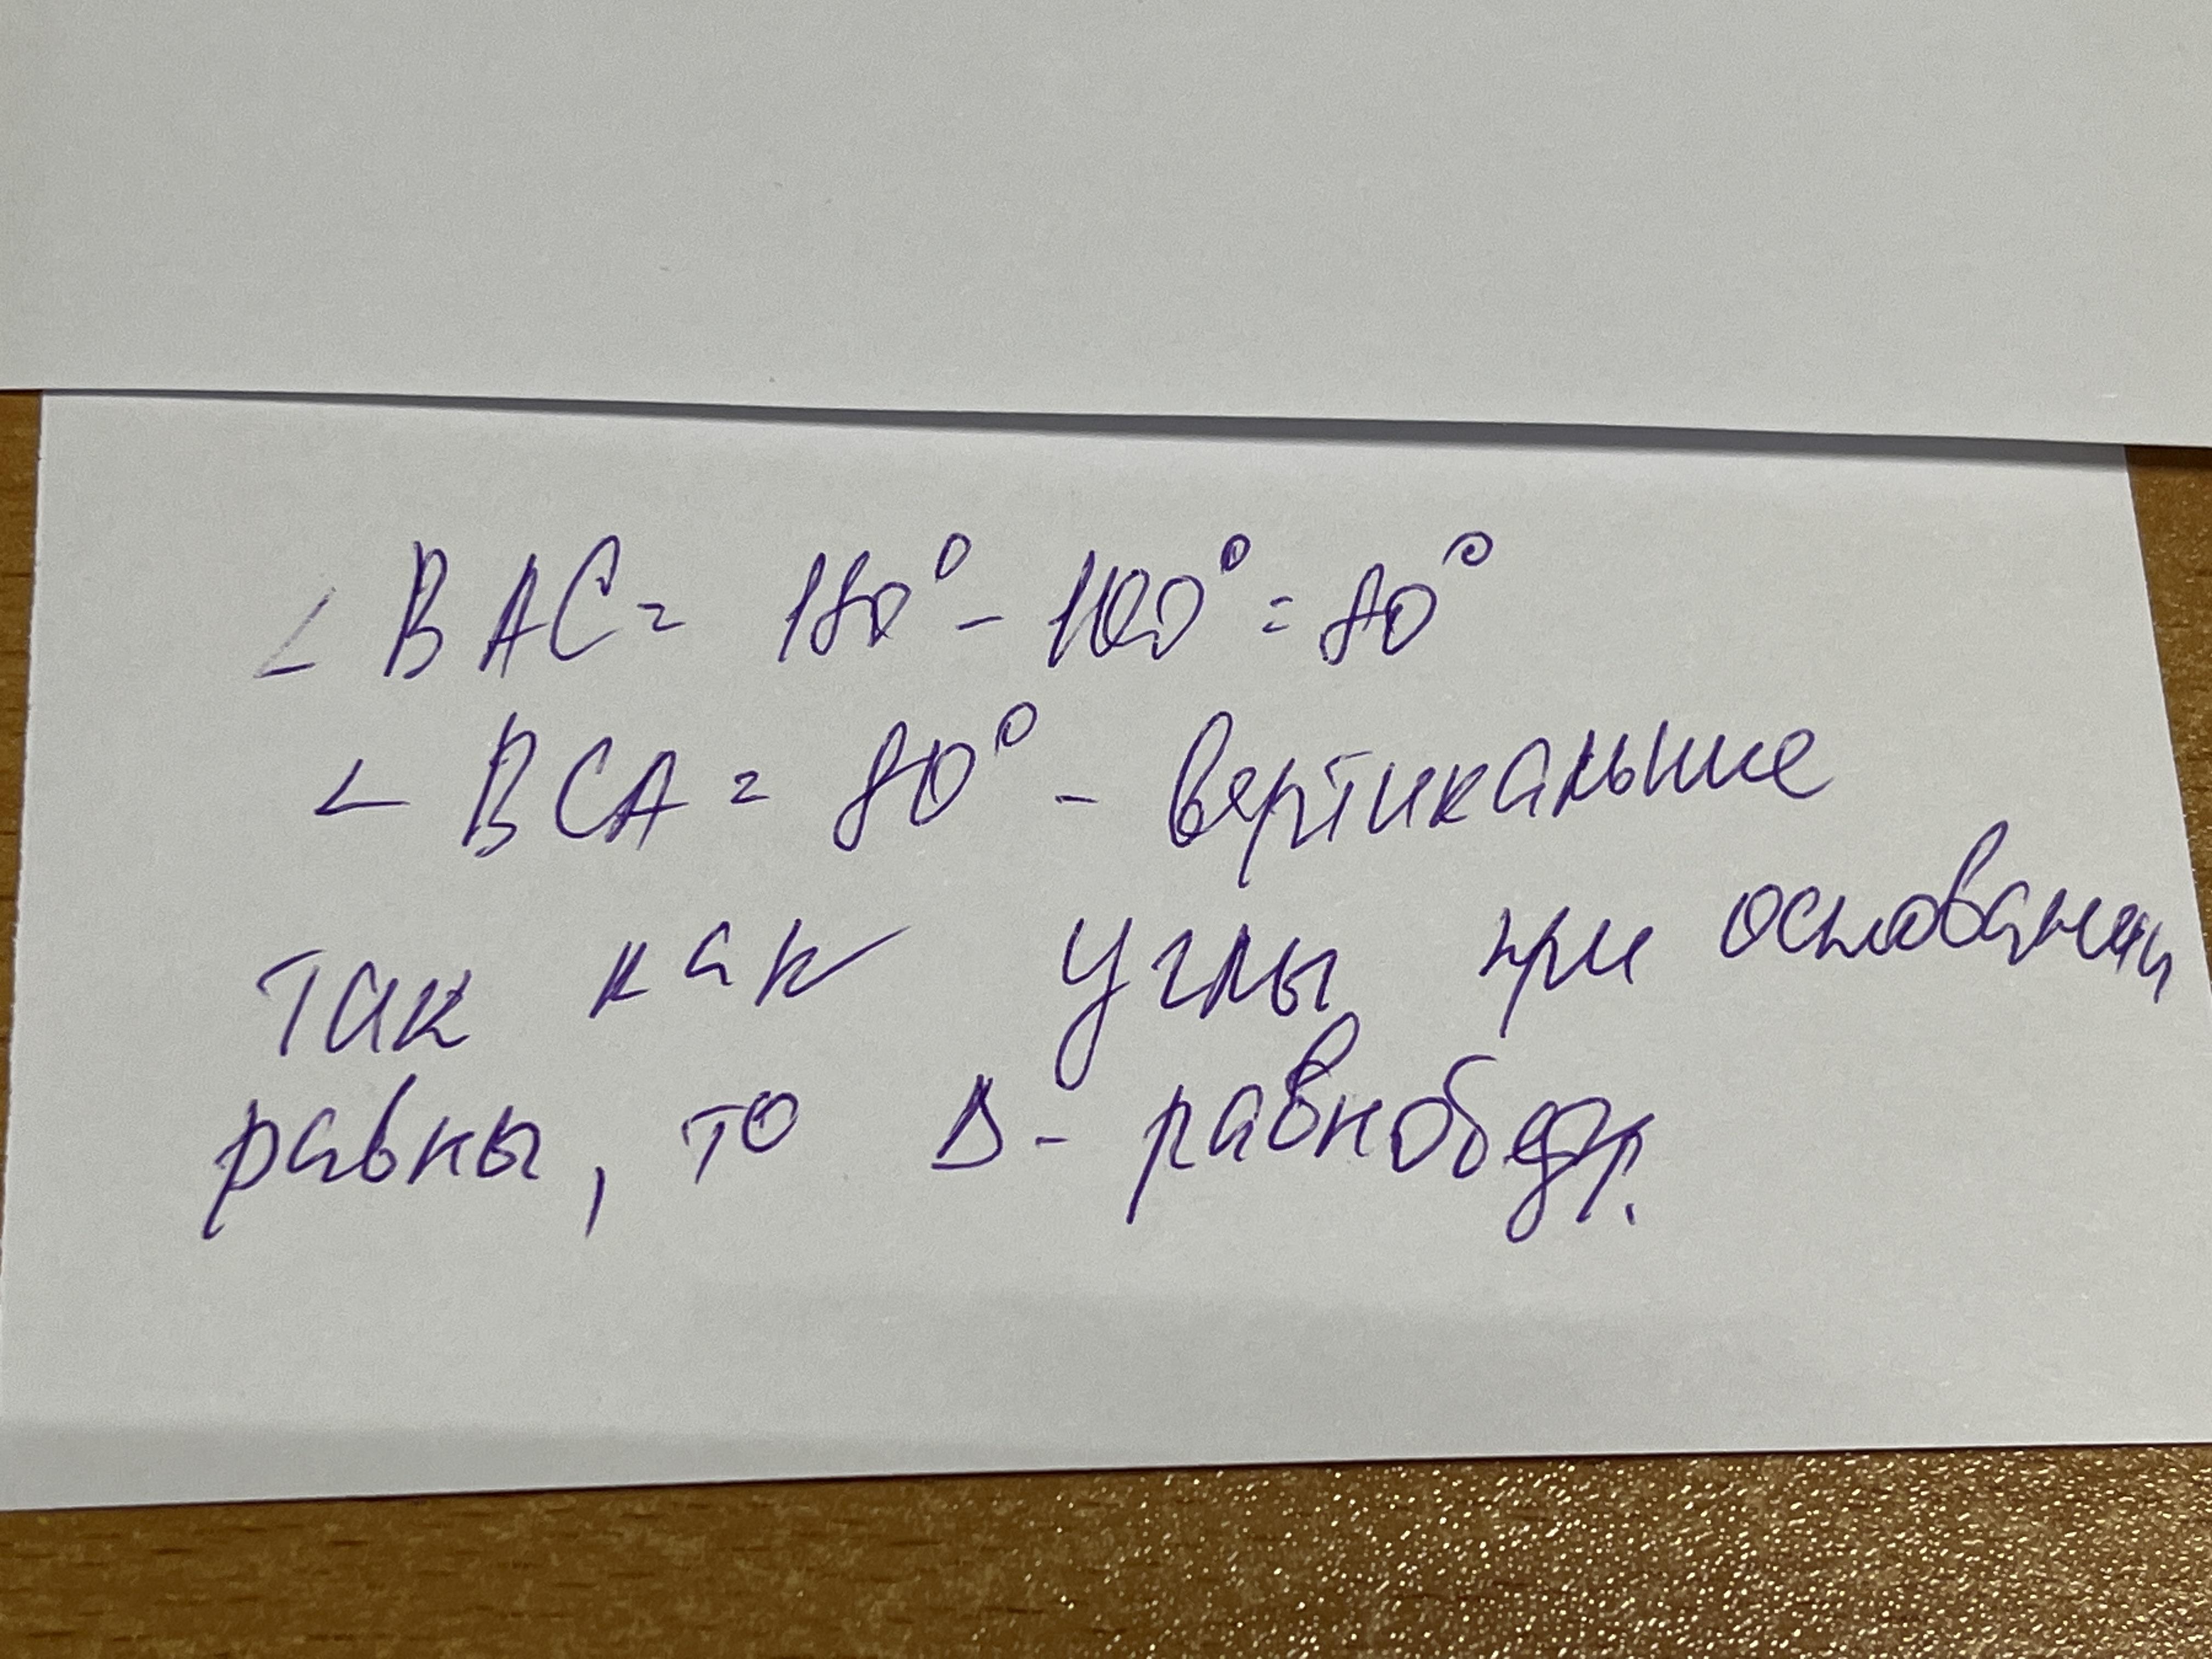 ∠ BAC = 180° - 100° = 80°
∠ BCA = 80° - вертикальные
так как углы при основании
равны, то Δ - равнобедр.